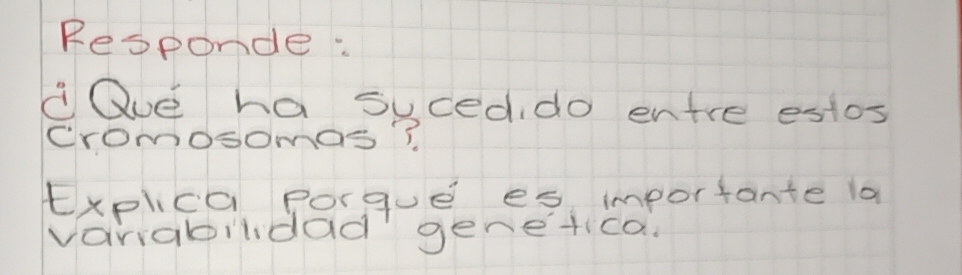 Responde:
¿Qué ha sucedido entre estos
cromosomas?
Explica porqué es importante la
variabilidad genética.